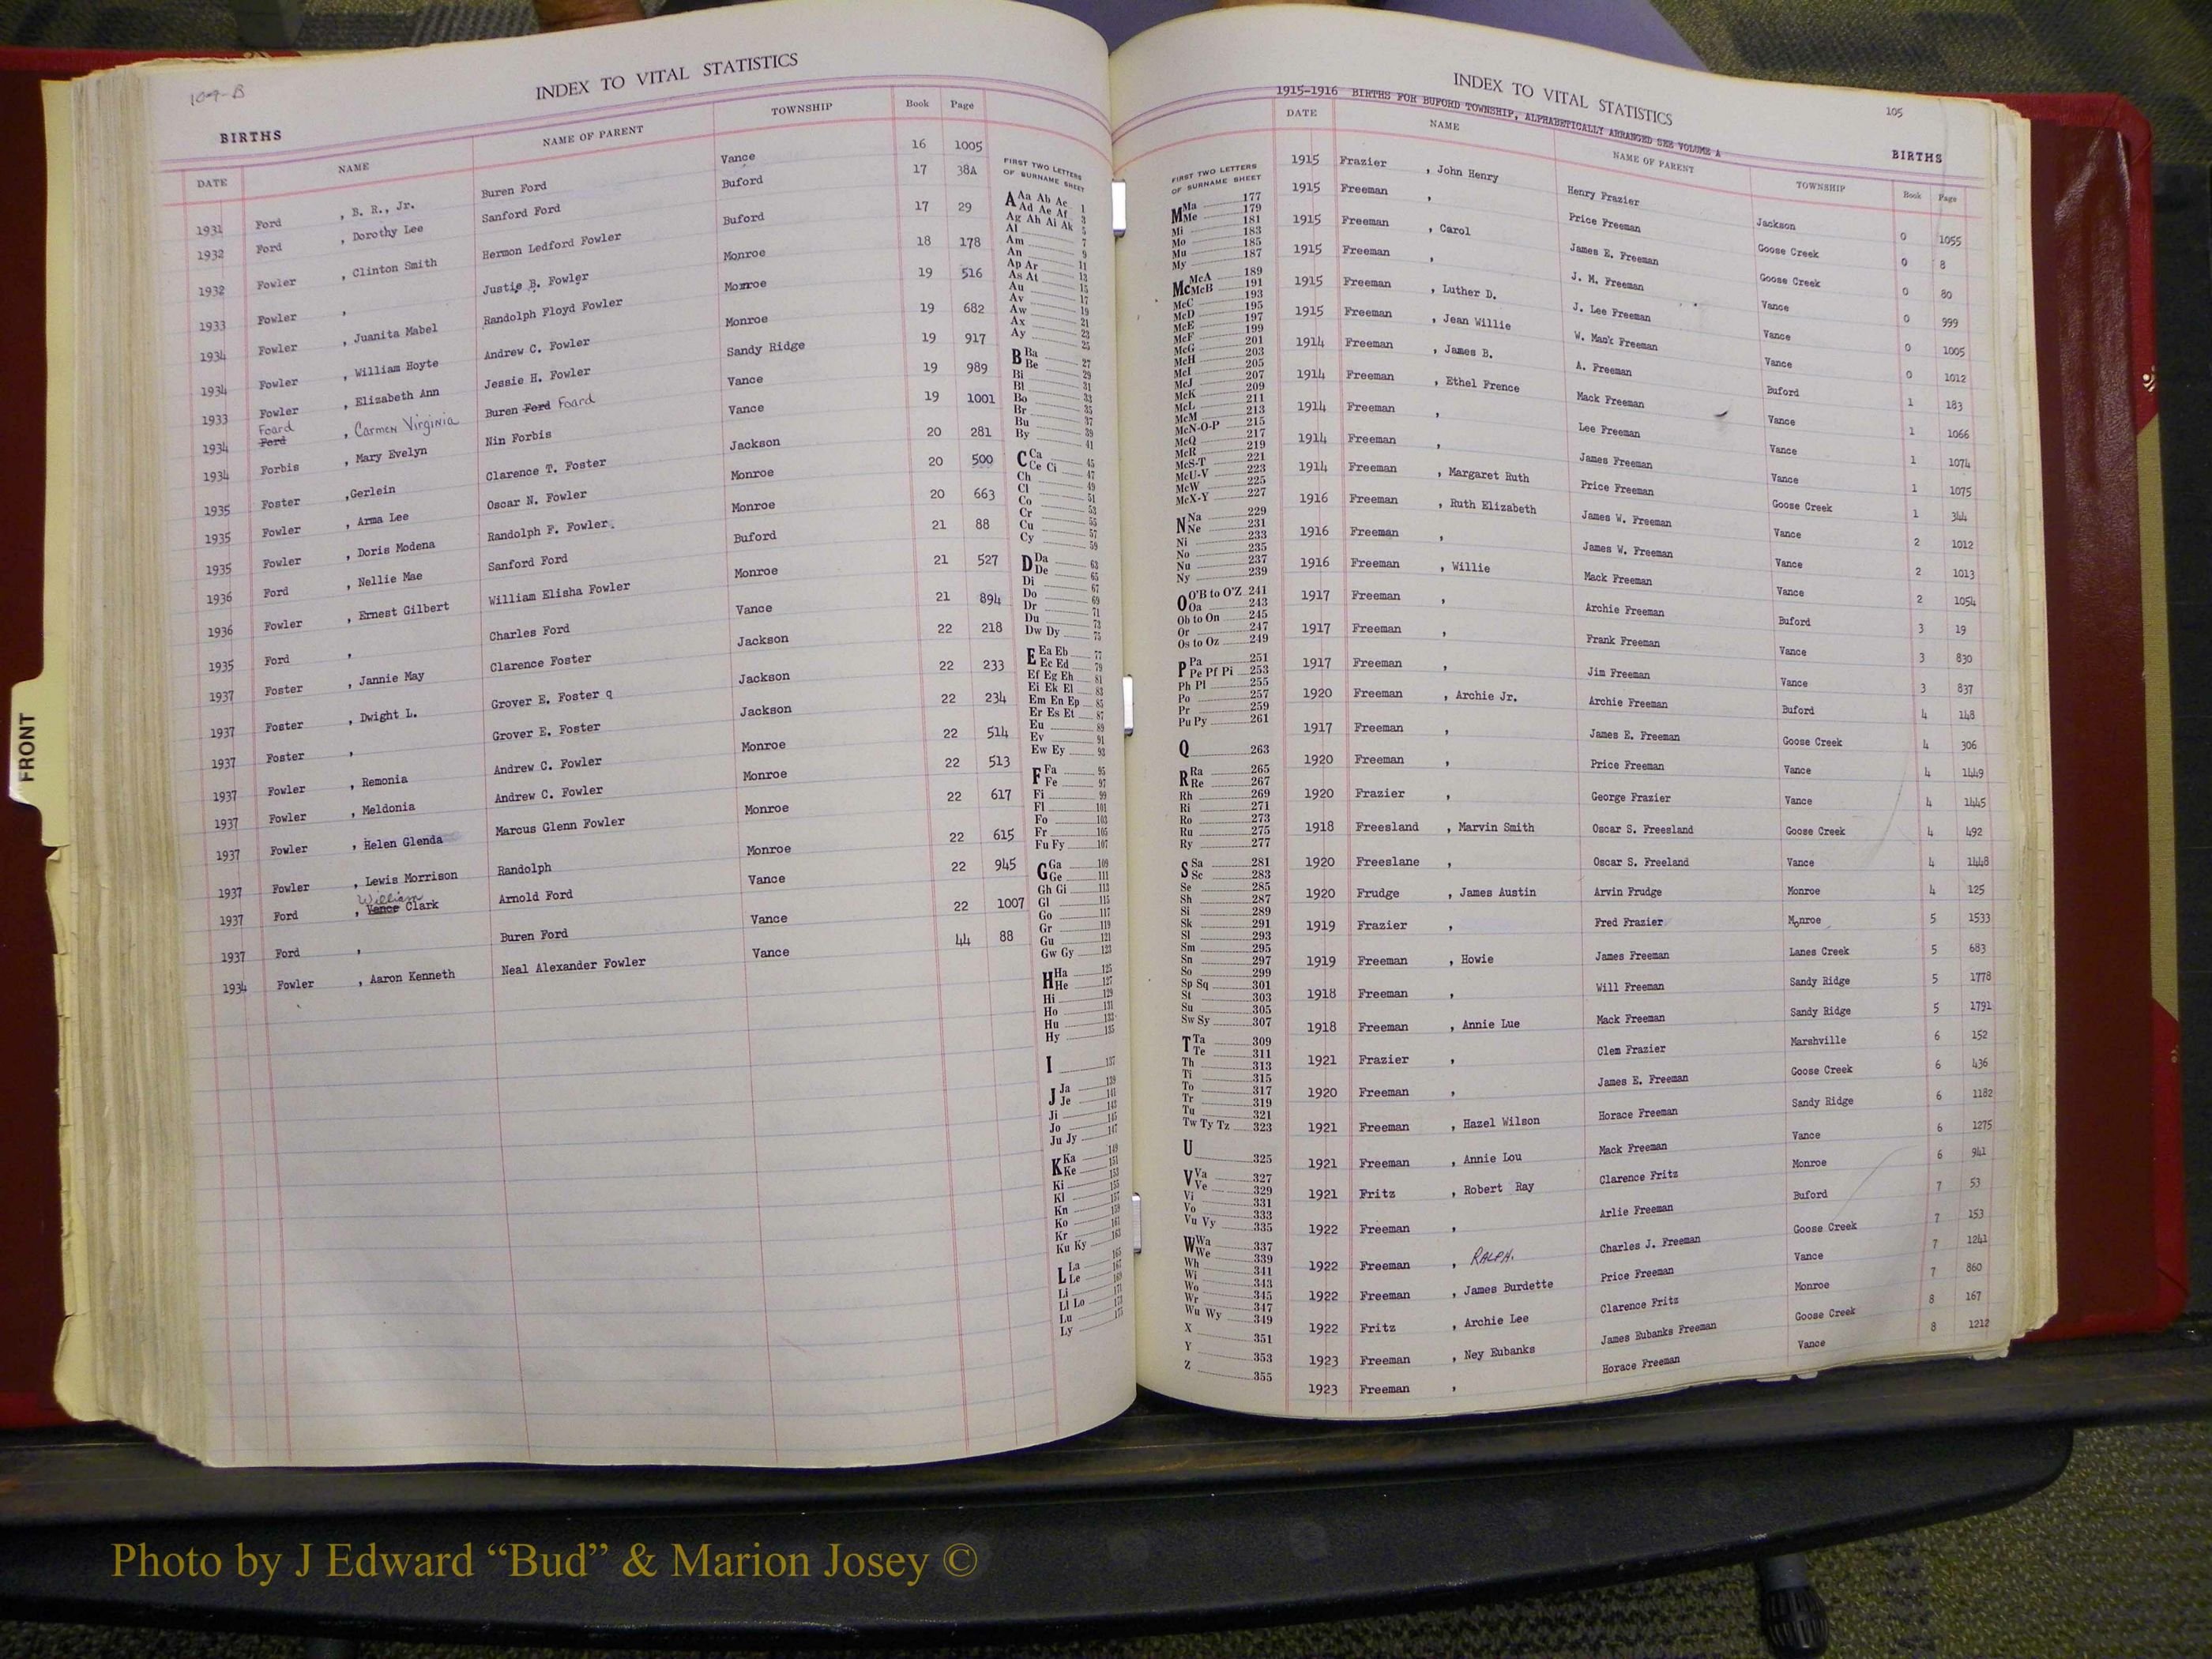 104-B
INDEX TO VITAL STATISTICS
BIRTHS
DATE NAME NAME OF PARENT TOWNSHIP Book Page
1931 Ford , B. R., Jr. Buren Ford Vance 16 1005
1932 Ford , Dorothy Lee Sanford Ford Buford 17 38A
1932 Fowler , Clinton Smith Hermon Ledford Fowler Buford 17 29
1933 Fowler , Justis B. Fowler Monroe 18 178
1934 Fowler , Juanita Mabel Randolph Floyd Fowler Monroe 19 516
1934 Fowler , William Hoyte Andrew C. Fowler Monroe 19 682
1933 Fowler , Elizabeth Ann Jessie H. Fowler Sandy Ridge 19 917
1934 Foard Ford , Carmen Virginia Buren Ford Foard Vance 19 989
1934 Forbis , Mary Evelyn Nin Forbis Vance 19 1001
1935 Foster ,Gerlein Clarence T. Foster Jackson 20 281
1935 Fowler , Arma Lee Oscar N. Fowler Monroe 20 500
1935 Fowler , Doris Modena Randolph F. Fowler. Monroe 20 663
1936 Ford , Nellie Mae Sanford Ford Buford 21 88
1936 Fowler , Ernest Gilbert William Elisha Fowler Monroe 21 527
1935 Ford , Charles Ford Vance 21 894
1937 Foster , Jannie May Clarence Foster Jackson 22 218
1937 Foster , Dwight L. Grover E. Foster q Jackson 22 233
1937 Foster , Grover E. Foster Jackson 22 234
1937 Fowler , Remonia Andrew C. Fowler Monroe 22 514
1937 Fowler , Meldonia Andrew C. Fowler Monroe 22 513
1937 Fowler , Helen Glenda Marcus Glenn Fowler Monroe 22 617
1937 Fowler , Lewis Morrison Randolph Monroe 22 615
1937 Ford , William Vance Clark Arnold Ford Vance 22 945
1937 Ford , Buren Ford Vance 22 1007
1934 Fowler , Aaron Kenneth Neal Alexander Fowler Vance 44 88
FIRST TWO LETTERS
OF SURNAME SHEET
A Aa Ab Ac 1
Ad Ae Af 3
Ag Ah Ai Ak 5
Al 7
Am 9
An 11
Ap Ar 13
As At 15
Au 17
Av 19
Aw 21
Ax 23
Ay 25
B Ba 27
Be 29
Bi 31
Bl 33
Bo 35
Br 37
Bu 39
By 41
C Ca 45
Ce Ci 47
Ch 49
Cl 51
Co 53
Cr 55
Cu 57
Cy 59
D Da 63
De 65
Di 67
Do 69
Dr 71
Du 73
Dw Dy 75
E Ea Eb 77
Ec Ed 79
Ef Eg Eh 81
Ei Ek El 83
Em En Ep 85
Er Es Et 87
Eu 89
Ev 91
Ew Ey 93
F Fa 95
Fe 97
Fi 99
Fl 101
Fo 103
Fr 105
Fu Fy 107
G Ga 109
Ge 111
Gh Gi 113
Gl 115
Go 117
Gr 119
Gu 121
Gw Gy 123
H Ha 125
He 127
Hi 129
Ho 131
Hu 133
Hy 135
I 137
J Ja 139
Je 141
Ji 143
Jo 145
Ju Jy 147
K Ka 149
Ke 151
Ki 153
Kl 155
Kn 159
Ko 161
Kr 163
Ku Ky
L La 165
Le 167
Li 169
Ll Lo 171
Lu 173
Ly 175
INDEX TO VITAL STATISTICS
105
1915-1916 BIRTHS FOR BUFORD TOWNSHIP, ALPHABETICALLY ARRANGED SEE VOLUME A
BIRTHS
DATE NAME NAME OF PARENT TOWNSHIP Book Page
FIRST TWO LETTERS
OF SURNAME SHEET
M Ma 177
Me 179
Mi 181
Mo 183
Mu 185
My 187
Mc McA 189
McB 191
McC 193
McD 195
McE 197
McF 199
McG 201
McH 203
McI 205
McJ 207
McK 209
McL 211
McM 213
McN-O-P 215
McQ 217
McR 219
McS-T 221
McU-V 223
McW 225
McX-Y 227
N Na 229
Ne 231
Ni 233
No 235
Nu 237
Ny 239
O O'B to O'Z 241
Oa 243
Ob to On 245
Or 247
Os to Oz 249
P Pa 251
Pe Pf Pi 253
Ph Pl 255
Po 257
Pr 259
Pu Py 261
Q 263
R Ra 265
Re 267
Rh 269
Ri 271
Ro 273
Ru 275
Ry 277
S Sa 281
Sc 283
Se 285
Sh 287
Si 289
Sk 291
Sl 293
Sm 295
Sn 297
So 299
Sp Sq 301
St 303
Su 305
Sw Sy 307
T Ta 309
Te 311
Th 313
Ti 315
To 317
Tr 319
Tu 321
Tw Ty Tz 323
U 325
V Va 327
Ve 329
Vi 331
Vo 333
Vu Vy 335
W Wa 337
We 339
Wh 341
Wi 343
Wo 345
Wr 347
Wu Wy 349
X 351
Y 353
Z 355
1915 Frazier , John Henry Henry Frazier Jackson 0 1055
1915 Freeman , Price Freeman Goose Creek 0 8
1915 Freeman , Carol James E. Freeman Goose Creek 0 80
1915 Freeman , J. M. Freeman Vance 0 999
1915 Freeman , Luther D. J. Lee Freeman Vance 0 1005
1915 Freeman , Jean Willie W. Mack Freeman Vance 0 1012
1914 Freeman , James B. A. Freeman Buford 1 183
1914 Freeman , Ethel Frence Mack Freeman Vance 1 1066
1914 Freeman , Lee Freeman Vance 1 1074
1914 Freeman , James Freeman Vance 1 1075
1914 Freeman , Margaret Ruth Price Freeman Goose Creek 1 344
1916 Freeman , Ruth Elizabeth James W. Freeman Vance 2 1012
1916 Freeman , James W. Freeman Vance 2 1013
1916 Freeman , Willie Mack Freeman Vance 2 1054
1917 Freeman , Archie Freeman Buford 3 19
1917 Freeman , Frank Freeman Vance 3 830
1917 Freeman , Jim Freeman Vance 3 837
1920 Freeman , Archie Jr. Archie Freeman Buford 4 148
1917 Freeman , James E. Freeman Goose Creek 4 306
1920 Freeman , Price Freeman Vance 4 1449
1920 Frazier , George Frazier Vance 4 1445
1918 Freesland , Marvin Smith Oscar S. Freesland Goose Creek 4 492
1920 Freeslane , Oscar S. Freeland Vance 4 1448
1920 Frudge , James Austin Arvin Frudge Monroe 4 125
1919 Frazier , Fred Frazier Monroe 5 1533
1919 Freeman , Howie James Freeman Lanes Creek 5 683
1918 Freeman , Will Freeman Sandy Ridge 5 1778
1918 Freeman , Annie Lue Mack Freeman Sandy Ridge 5 1791
1921 Frazier , Clem Frazier Marshville 6 152
1920 Freeman , James E. Freeman Goose Creek 6 436
1921 Freeman , Hazel Wilson Horace Freeman Sandy Ridge 6 1182
1921 Freeman , Annie Lou Mack Freeman Vance 6 1275
1921 Fritz , Robert Ray Clarence Fritz Monroe 6 941
1922 Freeman , Arlie Freeman Buford 7 53
1922 Freeman , RALPH. Charles J. Freeman Goose Creek 7 153
1922 Freeman , James Burdette Price Freeman Vance 7 1241
1922 Fritz , Archie Lee Clarence Fritz Monroe 7 860
1923 Freeman , Ney Eubanks James Eubanks Freeman Goose Creek 8 167
1923 Freeman , Horace Freeman Vance 8 1212
FRONT
Photo by J Edward “Bud” & Marion Josey ©